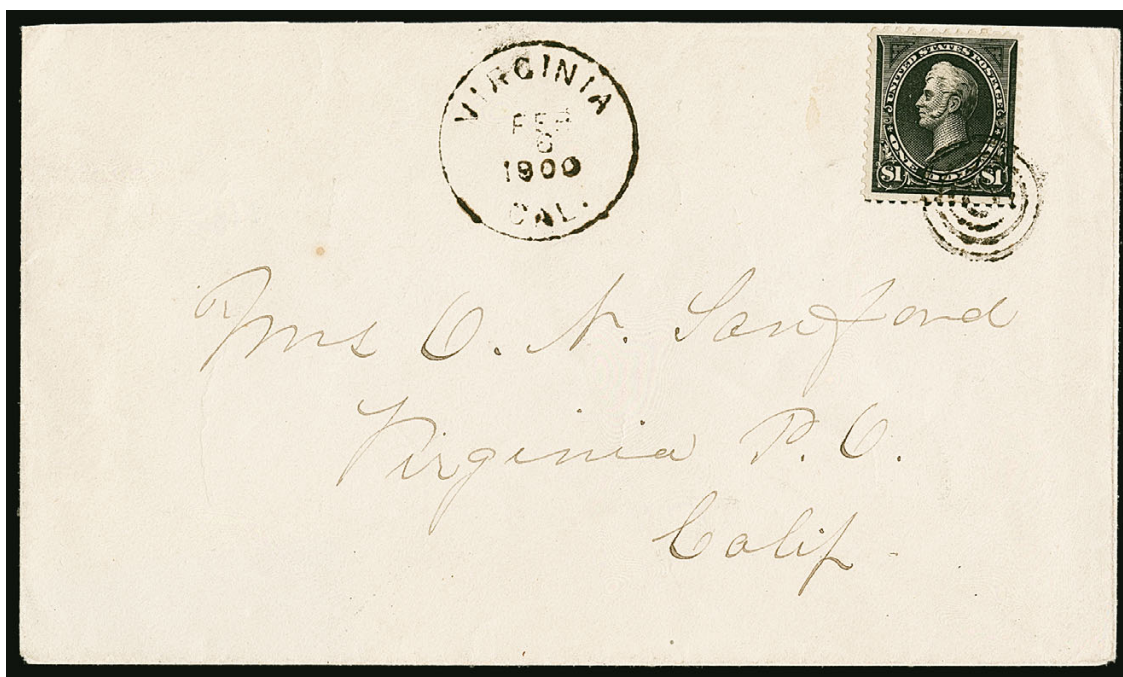 VIRGINIA
FEB
6
1900
CAL.
UNITED STATES POSTAGE
ONE DOLLAR
$1 $1
Mrs O. N. Sanford
Virginia P. O.
Calif.